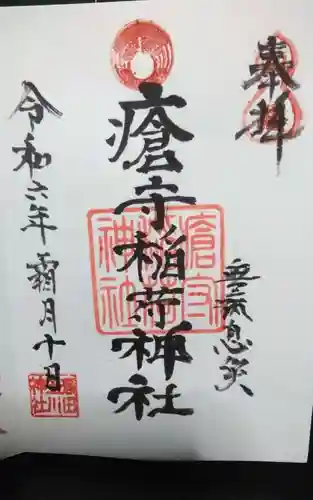 奉拝
無病息災
瘡守稲荷神社
瘡守稲荷神社
令和六年霜月十日